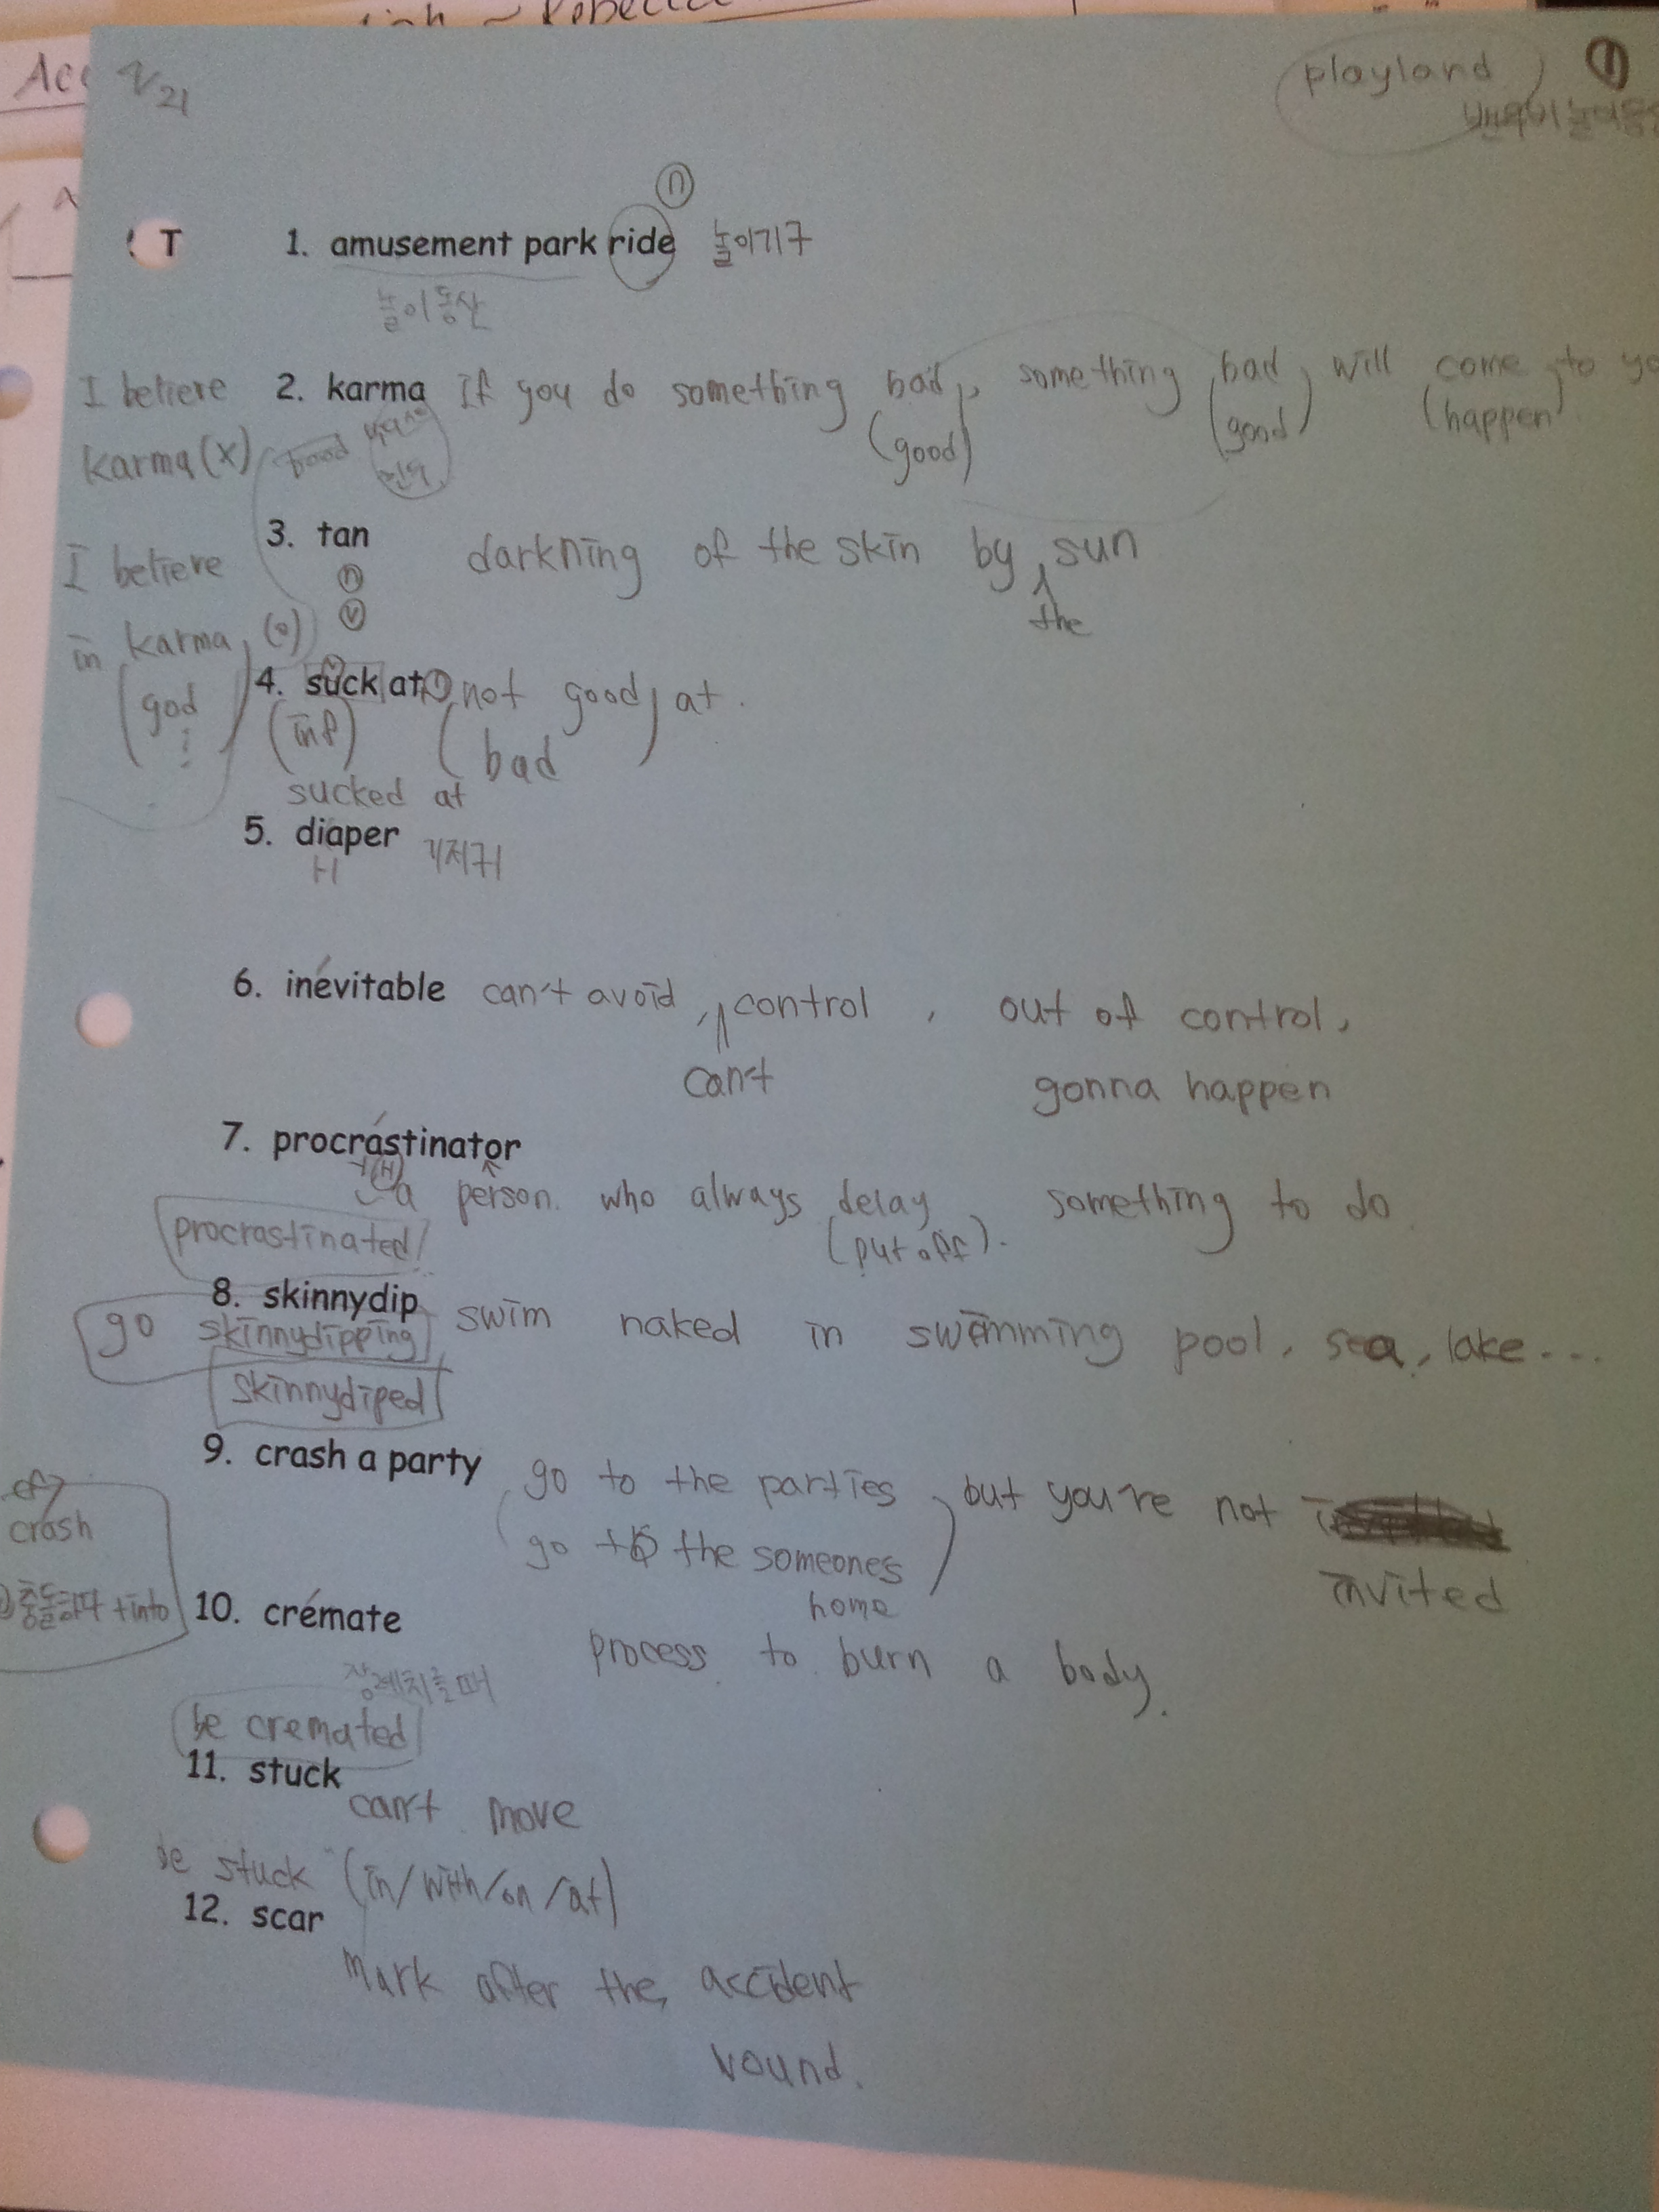 playland
T 1. amusement park ride 놀이기구
놀이동산
I believe 2. karma If you do something bad, something bad will come to
karma (x) (good) (good) (happen)
3. tan darkning of the skin by sun
the
I believe
in karma (o)
4. suck at not good at.
(god (inf) (bad
sucked at
5. diaper 기저귀
ㅐ
6. inevitable can't avoid, control, out of control,
can't gonna happen
7. procrastinator
a person who always delay something to do
procrastinated (put off).
8. skinnydip swim naked in swimming pool, sea, lake...
go skinnydipping
skinnydiped
9. crash a party go to the parties but you're not
crash go to the someones invited
home
충돌하다 +into 10. cremate
process to burn a body.
장례치를때
be cremated
11. stuck
can't move
be stuck (in/with/on/at)
12. scar
Mark after the accident
vound.